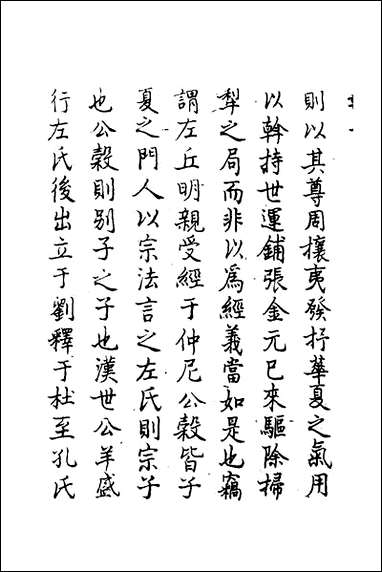 則以其尊周攘夷發抒華夏之氣用
以斡持世運鋪張金元已來驅除掃
犁之局而非以爲經義當如是也竊
謂左丘明親受經于仲尼公穀皆子
夏之門人以宗法言之左氏則宗子
也公穀則别子之子也漢世公羊盛
行左氏後出立于劉釋于杜至孔氏